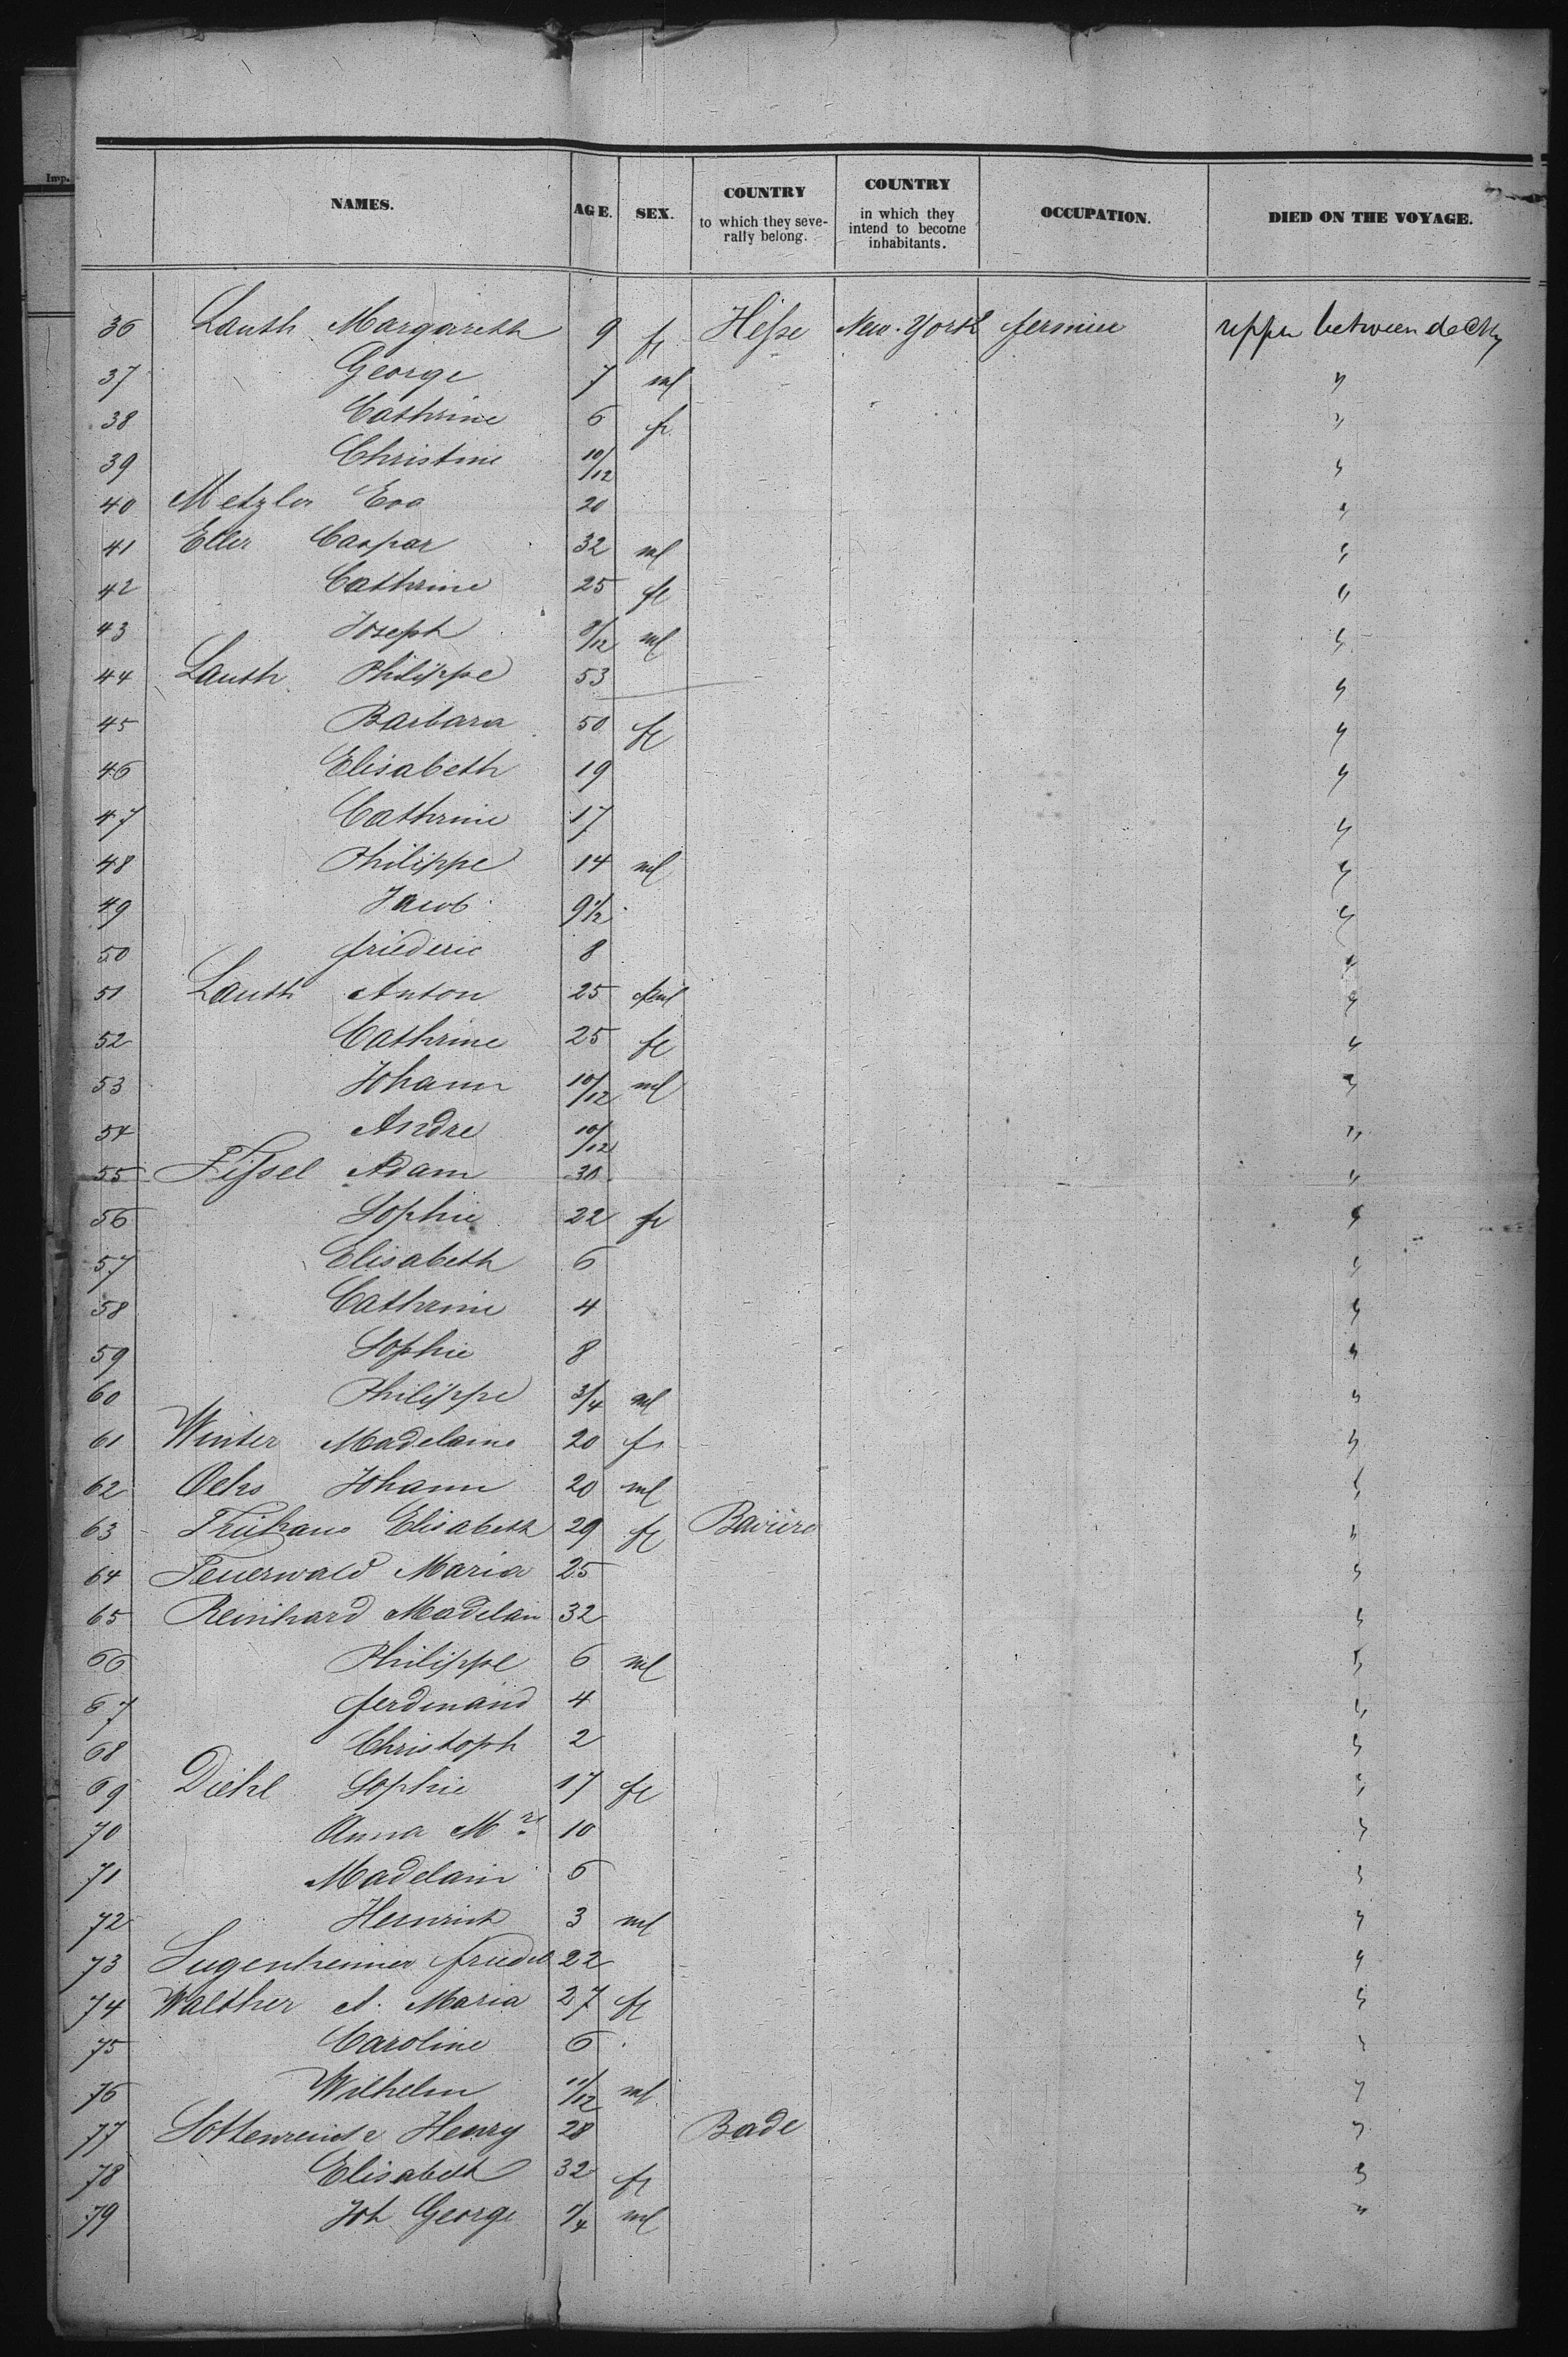 Imp.
NAMES. AGE. SEX. COUNTRY to which they severally belong. COUNTRY in which they intend to become inhabitants. OCCUPATION. DIED ON THE VOYAGE.
36 Lauth Margareth 9 fl Hesse New-York fermier upper between decks
37 George 7 ml "
38 Cathrine 6 fl "
39 Christine 10/12 "
40 Metzler Eva 20 "
41 Eller Caspar 32 ml "
42 Cathrine 25 fl "
43 Joseph 8/12 ml "
44 Lauth Philippe 53 "
45 Barbara 50 fl "
46 Elisabeth 19 "
47 Cathrine 17 "
48 Philippe 14 ml "
49 Jacob 9 1/2 "
50 friederic 8 "
51 Lauth Anton 25 ml "
52 Cathrine 25 fl "
53 Johann 10/12 ml "
54 Andre 10/12 "
55 Fissel Adam 30 "
56 Sophie 22 fl "
57 Elisabeth 6 "
58 Cathrine 4 "
59 Sophie 8 "
60 Philippe 3/4 ml "
61 Winter Madelaine 20 fl "
62 Ochs Johann 20 ml "
63 Elisabeth 29 fl Baviere "
64 Feuerwald Maria 25 "
65 Reinhard Madelain 32 "
66 Philippe 6 ml "
67 ferdinand 4 "
68 Christoph 2 "
69 Diehl Sophie 17 fl "
70 Anna Mre 10 "
71 Madelain 6 "
72 Heinrich 3 ml "
73 Sugenheimer 22 "
74 Walther A. Maria 27 fl "
75 Caroline 6 "
76 Wilhelm 11/12 ml "
77 Henry 28 Bade "
78 Elisabeth 32 fl "
79 Joh George 1/4 ml "